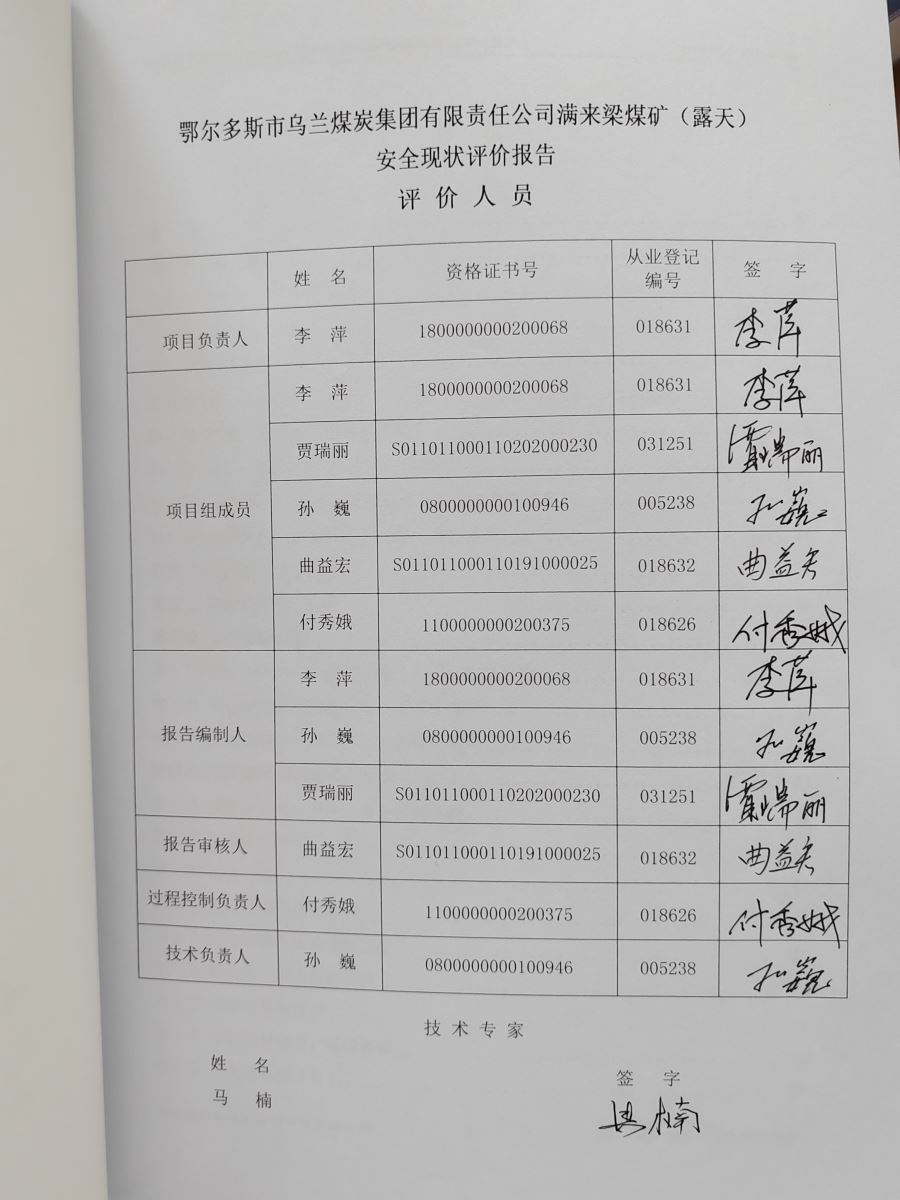 鄂尔多斯市乌兰煤炭集团有限责任公司满来梁煤矿（露天）
安全现状评价报告
评 价 人 员
姓 名 资格证书号 从业登记编号 签 字
项目负责人 李 萍 1800000000200068 018631 李萍
项目组成员 李 萍 1800000000200068 018631 李萍
贾瑞丽 S011011000110202000230 031251 贾瑞丽
孙 巍 0800000000100946 005238 孙巍
曲益宏 S011011000110191000025 018632 曲益宏
付秀娥 1100000000200375 018626 付秀娥
报告编制人 李 萍 1800000000200068 018631 李萍
孙 巍 0800000000100946 005238 孙巍
贾瑞丽 S011011000110202000230 031251 贾瑞丽
报告审核人 曲益宏 S011011000110191000025 018632 曲益宏
过程控制负责人 付秀娥 1100000000200375 018626 付秀娥
技术负责人 孙 巍 0800000000100946 005238 孙巍
技 术 专 家
姓 名 签 字
马 楠 马楠